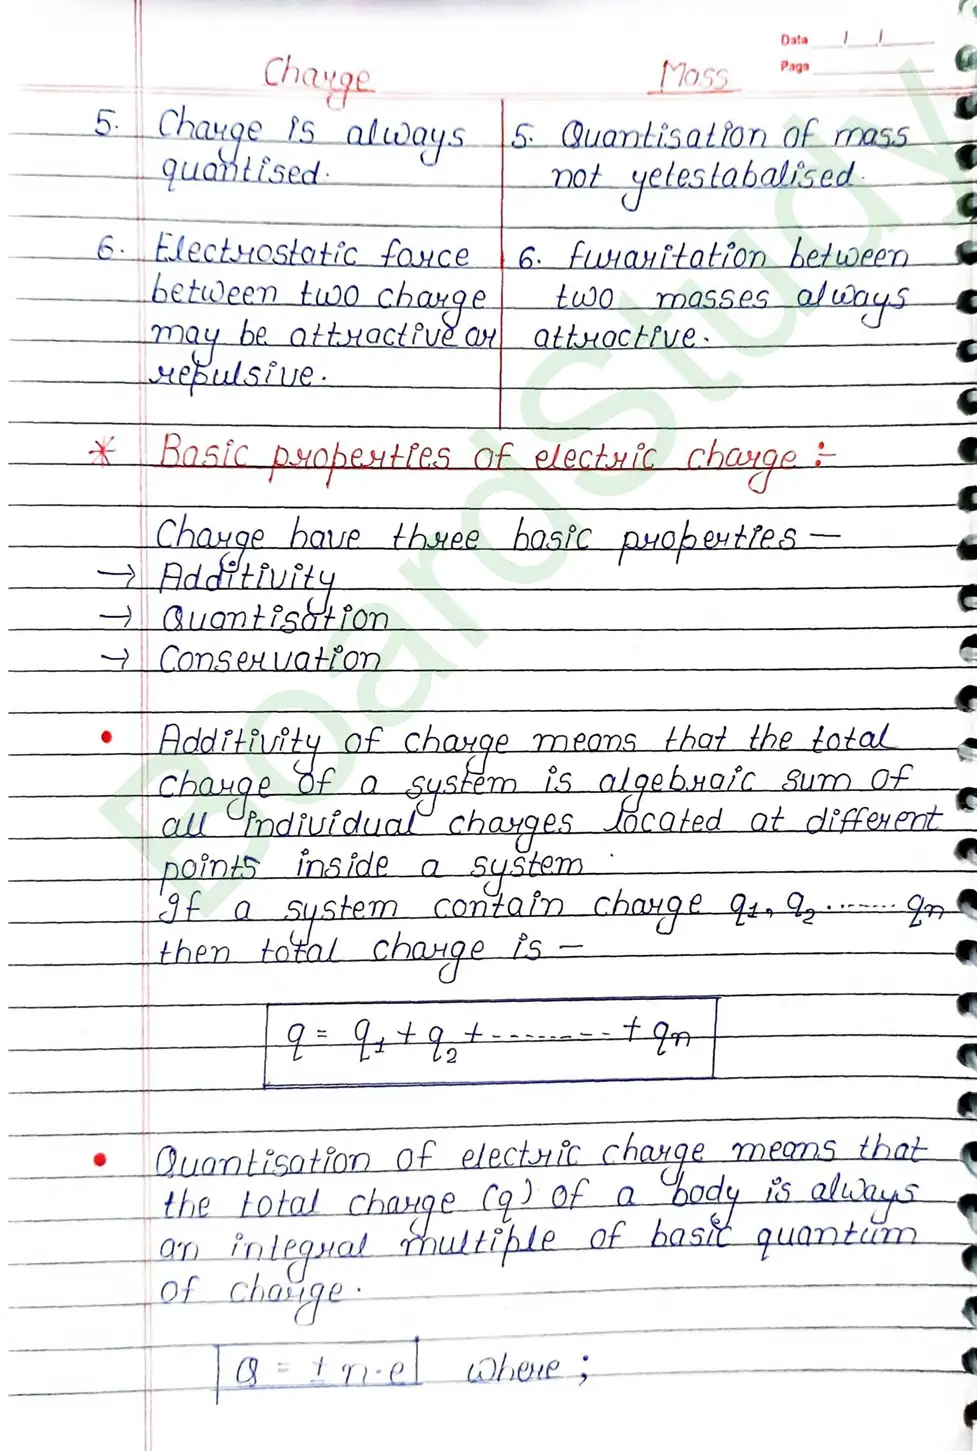 Date / /
Page
Charge Mass
5. Charge is always 5. Quantisation of mass
quantised. not yetestabalised.
6. Electrostatic force 6. Furaritation between
between two charge two masses always
may be attractive or attractive.
repulsive.
* Basic properties of electric charge :-
Charge have three basic properties —
→ Additivity
→ Quantisation
→ Conservation
• Additivity of charge means that the total
charge of a system is algebraic sum of
all individual charges located at different
points inside a system.
If a system contain charge q1, q2 ........ qn
then total charge is —
q = q1 + q2 + -------- + qn
• Quantisation of electric charge means that
the total charge (q) of a body is always
an integral multiple of basic quantum
of charge.
Q = ± n.e where ;
BoardStudy